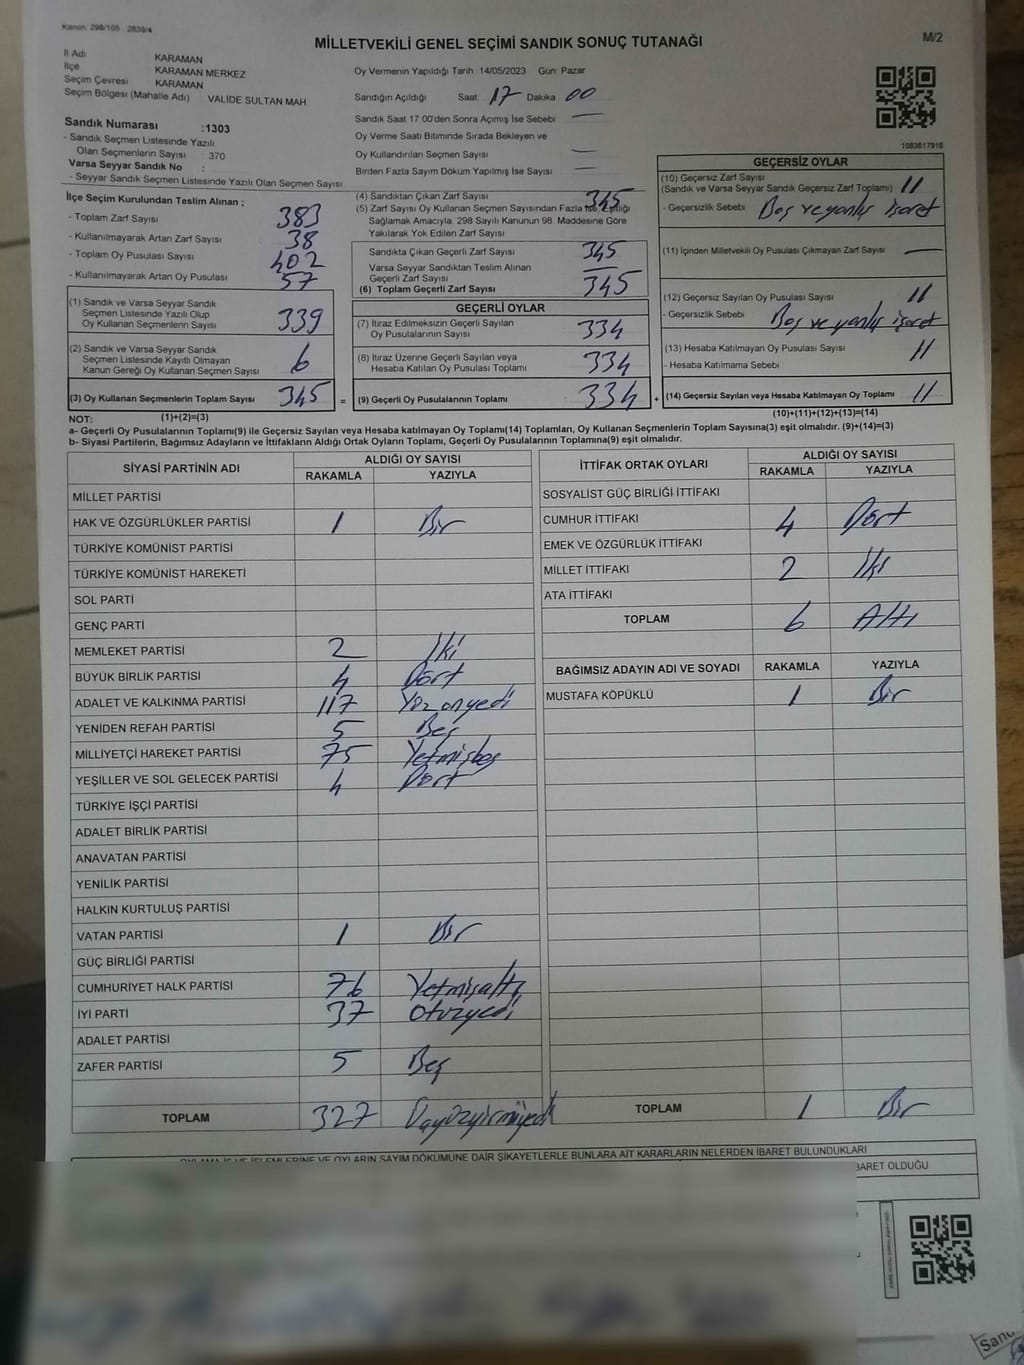 Kanun: 298/105 . 2839/4
M/2
MİLLETVEKİLİ GENEL SEÇİMİ SANDIK SONUÇ TUTANAĞI
İl Adı KARAMAN
İlçe KARAMAN MERKEZ
Seçim Çevresi KARAMAN
Seçim Bölgesi (Mahalle Adı) VALİDE SULTAN MAH
Sandık Numarası :1303
- Sandık Seçmen Listesinde Yazılı
Olan Seçmenlerin Sayısı : 370
Varsa Seyyar Sandık No :
- Seyyar Sandık Seçmen Listesinde Yazılı Olan Seçmen Sayısı
Oy Vermenin Yapıldığı Tarih 14/05/2023 Gün: Pazar
Sandığın Açıldığı Saat: 17 Dakika 00
Sandık Saat 17 00'den Sonra Açımış İse Sebebi —
Oy Verme Saati Bitiminde Sırada Bekleyen ve
Oy Kullandırılan Seçmen Sayısı —
Birden Fazla Sayım Döküm Yapılmış İse Sayısı —
1083617916
İlçe Seçim Kurulundan Teslim Alınan ;
- Toplam Zarf Sayısı 383
- Kullanılmayarak Artan Zarf Sayısı 38
- Toplam Oy Pusulası Sayısı 402
- Kullanılmayarak Artan Oy Pusulası 57
(1) Sandık ve Varsa Seyyar Sandık
Seçmen Listesinde Yazılı Olup
Oy Kullanan Seçmenlerin Sayısı 339
(2) Sandık ve Varsa Seyyar Sandık
Seçmen Listesinde Kayıtlı Olmayan
Kanun Gereği Oy Kullanan Seçmen Sayısı 6
(3) Oy Kullanan Seçmenlerin Toplam Sayısı 345 =
(1)+(2)=(3)
(4) Sandıktan Çıkan Zarf Sayısı 345
(5) Zarf Sayısı Oy Kullanan Seçmen Sayısından Fazla İse, Eşitliği
Sağlamak Amacıyla, 298 Sayılı Kanunun 98. Maddesine Göre
Yakılarak Yok Edilen Zarf Sayısı
Sandıkta Çıkan Geçerli Zarf Sayısı 345
Varsa Seyyar Sandıktan Teslim Alınan
Geçerli Zarf Sayısı —
(6) Toplam Geçerli Zarf Sayısı 345
GEÇERLİ OYLAR
(7) İtiraz Edilmeksizin Geçerli Sayılan
Oy Pusulalarının Sayısı 334
(8) İtiraz Üzerine Geçerli Sayılan veya
Hesaba Katılan Oy Pusulası Toplamı 334
(9) Geçerli Oy Pusulalarının Toplamı 334 +
GEÇERSİZ OYLAR
(10) Geçersiz Zarf Sayısı
(Sandık ve Varsa Seyyar Sandık Geçersiz Zarf Toplamı) 11
- Geçersizlik Sebebi Boş ve yanlış işaret
(11) İçinden Milletvekili Oy Pusulası Çıkmayan Zarf Sayısı —
(12) Geçersiz Sayılan Oy Pusulası Sayısı 11
- Geçersizlik Sebebi : Boş ve yanlış işaret
(13) Hesaba Katılmayan Oy Pusulası Sayısı 11
- Hesaba Katılmama Sebebi
(14) Geçersiz Sayılan veya Hesaba Katılmayan Oy Toplamı 11
(10)+(11)+(12)+(13)=(14)
NOT:
a- Geçerli Oy Pusulalarının Toplamı(9) ile Geçersiz Sayılan veya Hesaba katılmayan Oy Toplamı(14) Toplamları, Oy Kullanan Seçmenlerin Toplam Sayısına(3) eşit olmalıdır. (9)+(14)=(3)
b- Siyasi Partilerin, Bağımsız Adayların ve İttifakların Aldığı Ortak Oyların Toplamı, Geçerli Oy Pusulalarının Toplamına(9) eşit olmalıdır.
SİYASİ PARTİNİN ADI ALDIĞI OY SAYISI
RAKAMLA YAZIYLA
MİLLET PARTİSİ
HAK VE ÖZGÜRLÜKLER PARTİSİ 1 Bir
TÜRKİYE KOMÜNİST PARTİSİ
TÜRKİYE KOMÜNİST HAREKETİ
SOL PARTİ
GENÇ PARTİ
MEMLEKET PARTİSİ 2 İki
BÜYÜK BİRLİK PARTİSİ 4 Dört
ADALET VE KALKINMA PARTİSİ 117 Yüzonyedi
YENİDEN REFAH PARTİSİ 5 Beş
MİLLİYETÇİ HAREKET PARTİSİ 75 Yetmişbeş
YEŞİLLER VE SOL GELECEK PARTİSİ 4 Dört
TÜRKİYE İŞÇİ PARTİSİ
ADALET BİRLİK PARTİSİ
ANAVATAN PARTİSİ
YENİLİK PARTİSİ
HALKIN KURTULUŞ PARTİSİ
VATAN PARTİSİ 1 Bir
GÜÇ BİRLİĞİ PARTİSİ
CUMHURİYET HALK PARTİSİ 76 Yetmişaltı
İYİ PARTİ 37 Otuzyedi
ADALET PARTİSİ
ZAFER PARTİSİ 5 Beş
TOPLAM 327 Üçyüzyirmiyedi
İTTİFAK ORTAK OYLARI ALDIĞI OY SAYISI
RAKAMLA YAZIYLA
SOSYALİST GÜÇ BİRLİĞİ İTTİFAKI
CUMHUR İTTİFAKI 4 Dört
EMEK VE ÖZGÜRLÜK İTTİFAKI
MİLLET İTTİFAKI 2 İki
ATA İTTİFAKI
TOPLAM 6 Altı
BAĞIMSIZ ADAYIN ADI VE SOYADI RAKAMLA YAZIYLA
MUSTAFA KÖPÜKLÜ 1 Bir
TOPLAM 1 Bir
OYLAMA İŞ VE İŞLEMLERİNE VE OYLARIN SAYIM DÖKÜMÜNE DAİR ŞİKAYETLERLE BUNLARA AİT KARARLARIN NELERDEN İBARET BULUNDUKLARI
BARET OLDUĞU